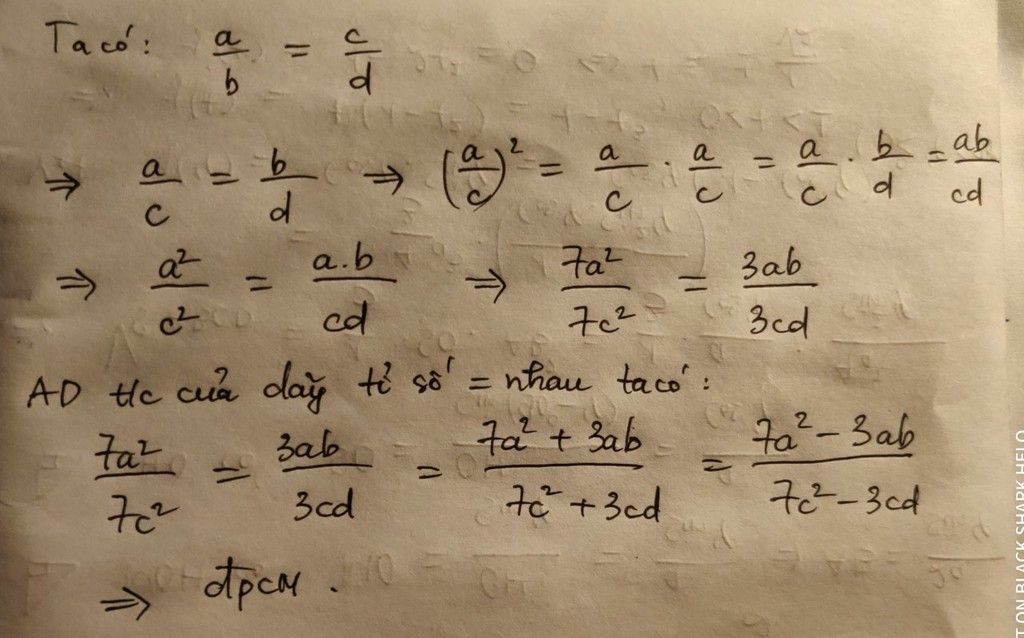 Ta có: a/b = c/d
⇒ a/c = b/d ⇒ (a/c)² = a/c . a/c = a/c . b/d = ab/cd
⇒ a²/c² = a.b/cd ⇒ 7a²/7c² = 3ab/3cd
AD t/c của dãy tỉ số = nhau ta có:
7a²/7c² = 3ab/3cd = (7a² + 3ab)/(7c² + 3cd) = (7a² - 3ab)/(7c² - 3cd)
⇒ đpcm.
T ON BLACK SHARK HELO